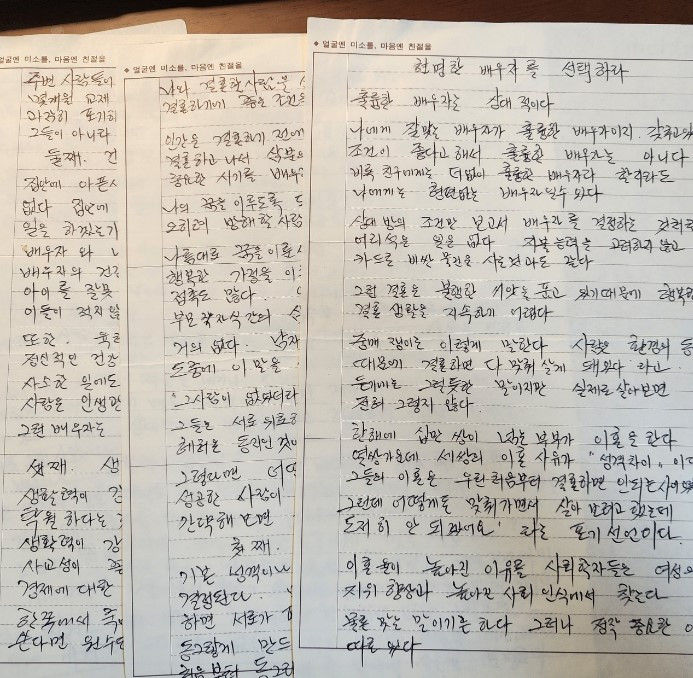 얼굴엔 미소를, 마음엔 친절을
주변 사람들이
그들이 아니다
둘째. 건
집안에 아픈
없다 집안에
일을 하겠는가
배우자 와
배우자의 건
아이 를 잘못
이들이 적지 않
또한.
정신적인 건강
사소한 일에도
사람은 인생
그런 배우자는
셋째. 생
생활력이 강
생활력이 강
사고성이
경제에 대한
한쪽에서
쓴다면
◆ 얼굴엔 미소를, 마음엔 친절을
나와 결혼한 사람을
결혼하기에 좋은 조건
인간은 결혼하기 전에
결혼하고 나서
중요한 시기를 배우
나의 꿈을 이루도록
오히려 방해할 사람
나름대로 꿈을 이룬
행복한 가정을 이
접촉도 많다.
부모 와 자식 간의
거의 없다. 남자
도중에 이 말을
"그 사람이 없었더라
그들은 서로
동지인 것이
그렇다면 어떤
성공한 사람이
간략해 보면
첫째.
기본 성격이나
결정된다.
하면 서로가
동그랗게 만드
처음부터 동그라
◆ 얼굴엔 미소를, 마음엔 친절을
현명한 배우자를 선택하라
훌륭한 배우자는 상대적이다
나에게 잘맞는 배우자가 훌륭한 배우자이지. 갖추고 있
조건이 좋다고 해서 훌륭한 배우자는 아니다
비록 친구에게는 더없이 훌륭한 배우자라 할지라도
나에게는 형편없는 배우자 일수 있다
상대방의 조건만 보고서 배우자를 결정하는 것처럼
어리석은 일은 없다 지불능력을 고려하지 않고
카드로 비싼 물건을 사는것과도 같다
그런 결혼은 불행한 씨앗을 품고 있기때문에 행복한
결혼 생활을 지속하기 어렵다
중매 쟁이는 이렇게 말한다 사람은 환경의 동
때문에 결혼하면 다 맞춰 살게 돼있다 라고.
듣기에는 그럴듯한 말이지만 실제로 살아보면
전혀 그렇지 않다.
한해에 십만 쌍이 넘는 부부가 이혼을 한다
열쌍가운데 세쌍의 이혼 사유가 "성격차이" 이다
그들의 이혼은 우린 처음부터 결혼하면 안되는 사이였
그런데 어떻게든 맞춰가면서 살아 보려고 했는데
도저히 안 되겠어요' 라는 포기 선언이다.
이혼율이 높아진 이유를 사회학자들은 여성의
지위 향상과 높아진 사회 인식에서 찾는다
물론 맞는 말이기는 하다 그러나 정작 중요한
따로 있다